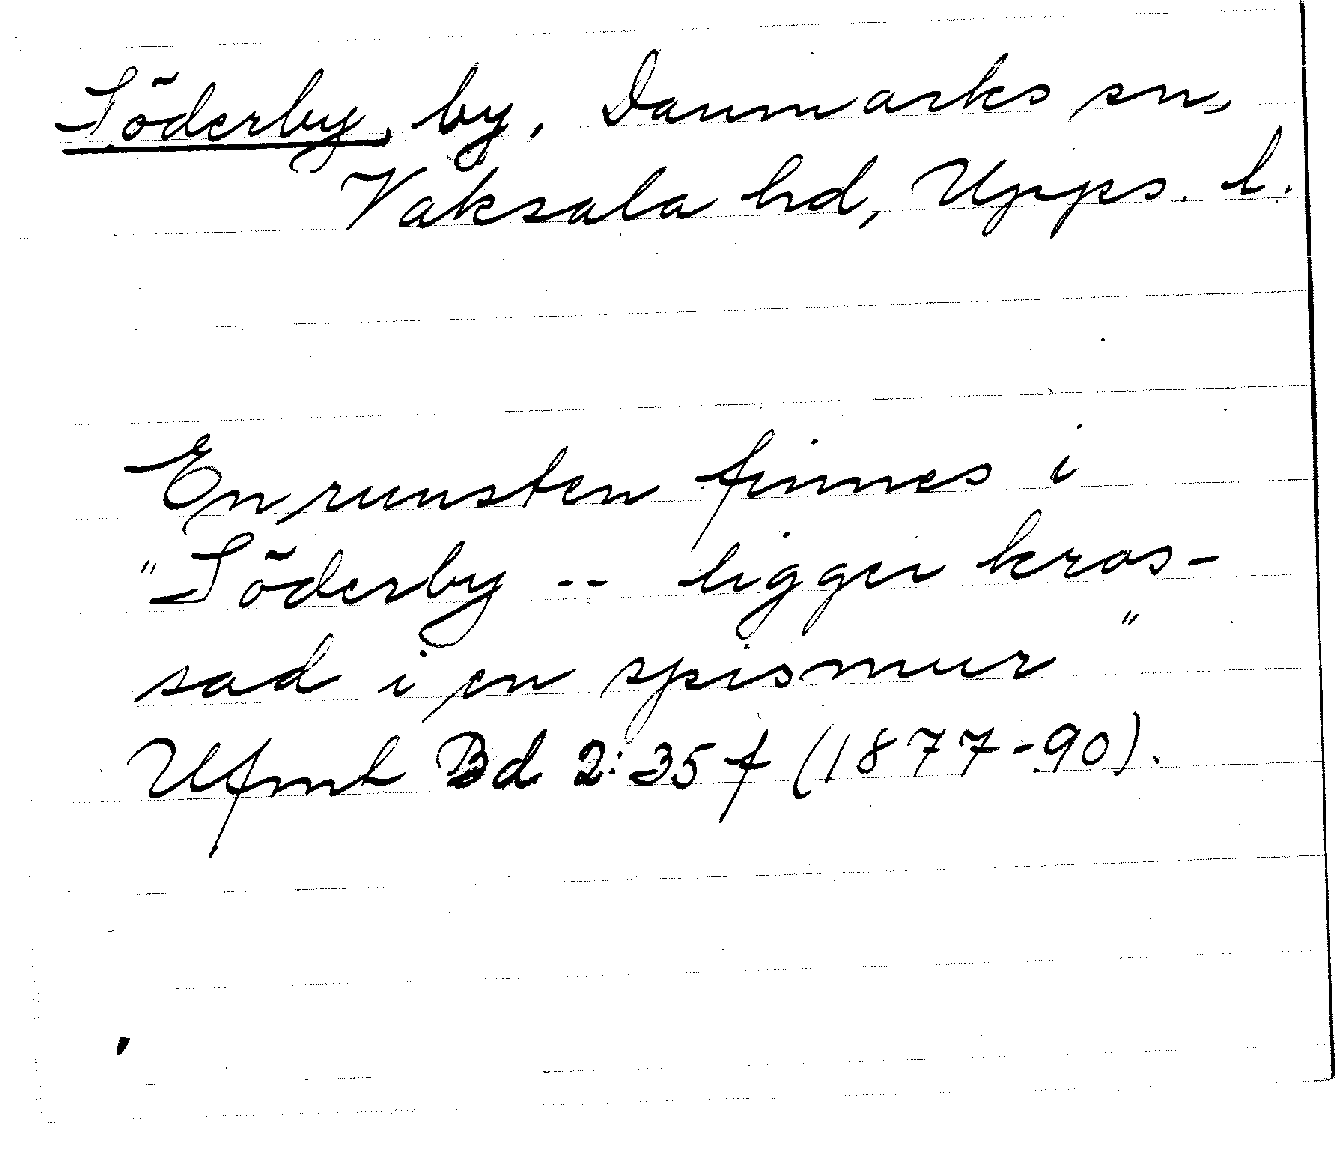 Söderby, by, Danmarks sn,
Vaksala hd, Upps. l.
En runsten finnes i
"Söderby -- ligger kros-
sad i en spismur"
Ufmt Bd 2:35 f (1877-90).